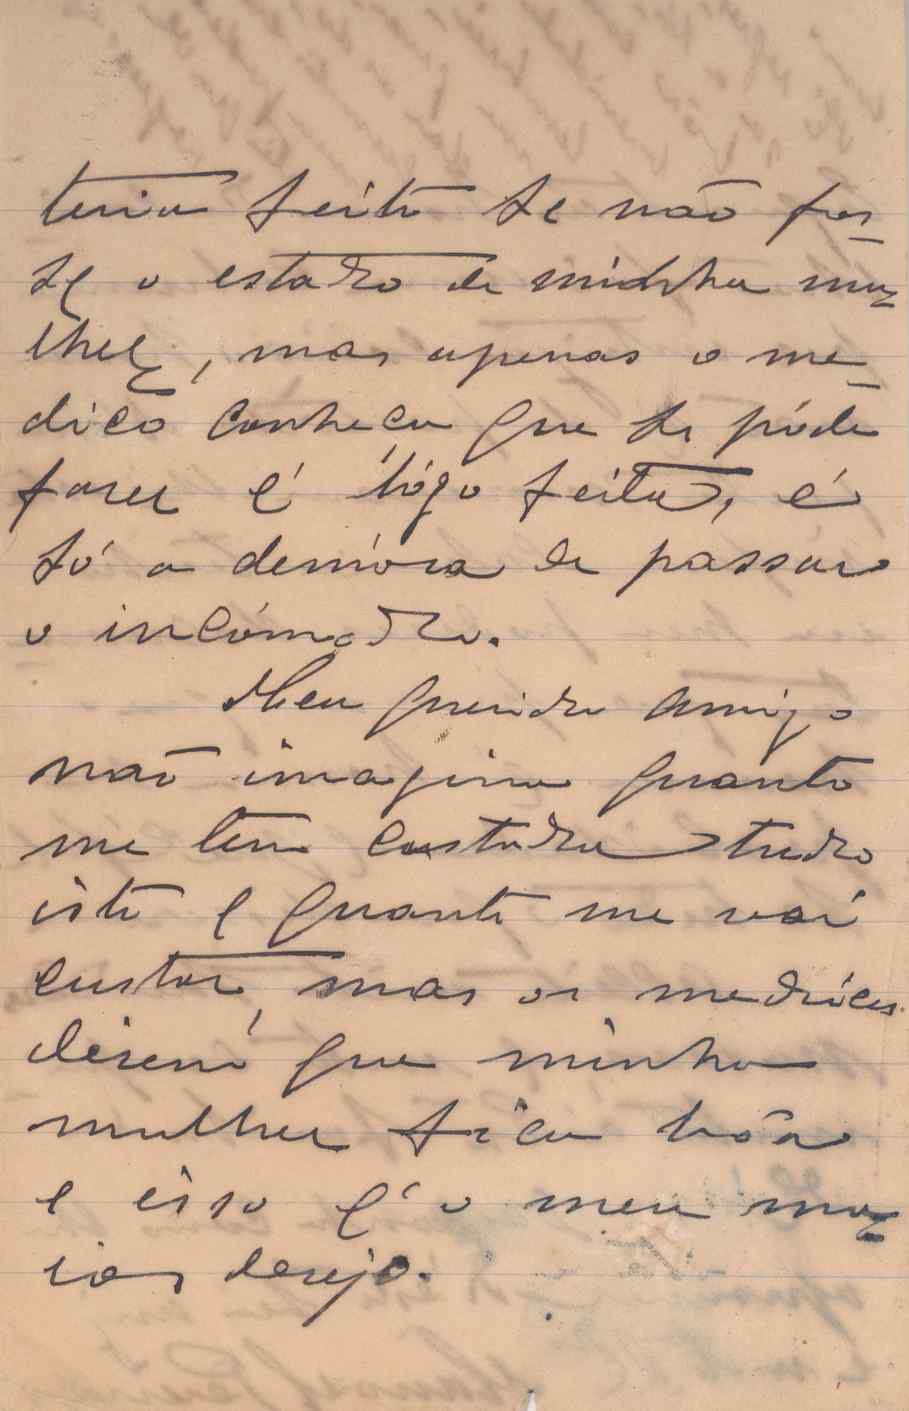 teria feito se não fos-
se o estado de minha mu-
lher, mas apenas o me-
dico conheça que se póde
faser é lógo feita, é
só a demóra de passar
o incómodo.
Meu querido amigo
não imagina quanto
me tem custado tudo
isto e quanto me vai
custar, mas os medicos
disem que minha
mulher fica bôa
e isso é o meu ma-
ior desejo.